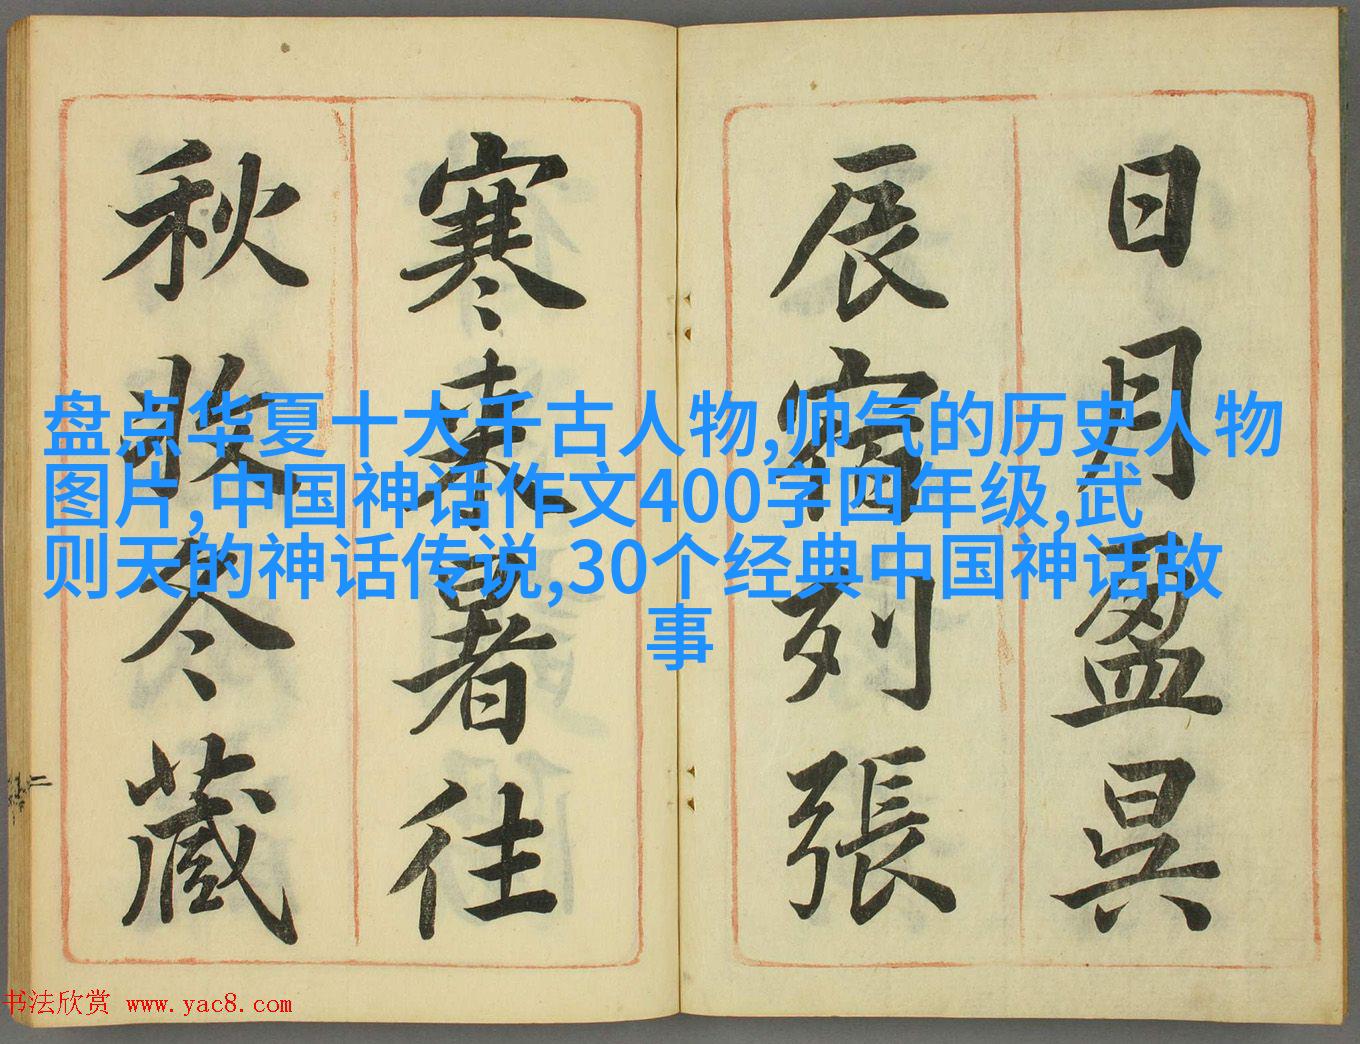 日月盈昃
辰宿列張
寒来暑往
秋收冬藏
二
盘点华夏十大千古人物,帅气的历史人物
图片,中国神话作文400字四年级,武
则天的神话传说,30个经典中国神话故
事
书法欣赏 www.yac8.com